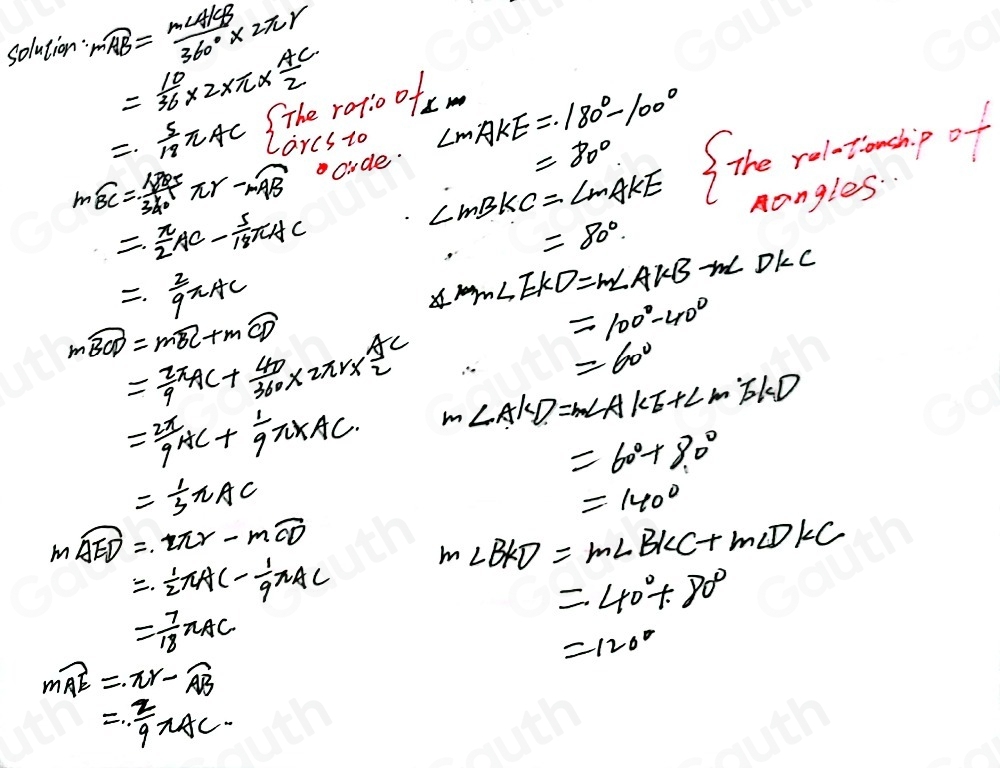 Solution: mAB = m∠AKB/360° × 2πr
= 10/36 × 2 × π × AC/2
= 5/18 πAC
{The ratio of arcs to circle.
mBC = 180°/360° πr - mAB
= π/2 AC - 5/18 πAC
= 2/9 πAC
mBCD = mBC + mCD
= 2/9 πAC + 40/360 × 2πr × AC/2
= 2π/9 AC + 1/9 π×AC.
= 1/3 πAC
mAED = πr - mCD
= 1/2 πAC - 1/9 πAC
= 7/18 πAC.
mAE = πr - AB
= 2/9 πAC.
∠mAKE = 180° - 100°
= 80°.
∠mBKC = ∠mAKE
= 80°.
{The relationship of angles.
m∠EKD = m∠AKB - m∠DKC
= 100° - 40°
= 60°
m∠AKD = m∠AKE + ∠mEKD
= 60° + 80°
= 140°
m∠BKD = m∠BKC + m∠DKC
= 40° + 80°
= 120°
Gauth